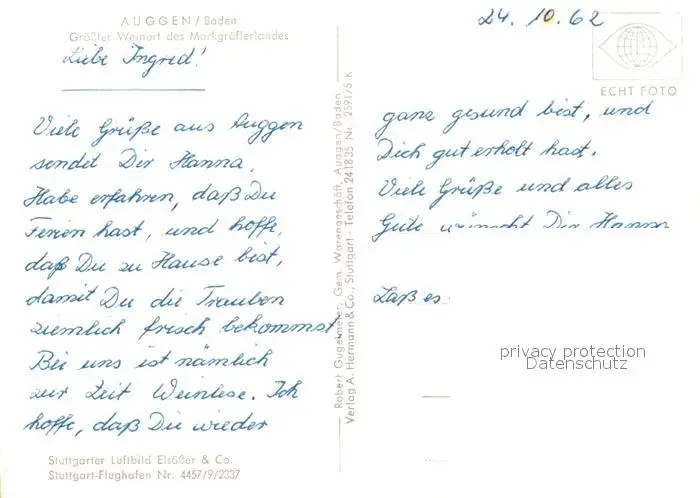 AUGGEN / Baden
Größter Weinort des Markgräflerlandes
Liebe Ingrid!
Viele Grüße aus Auggen
sendet Dir Hanna.
Habe erfahren, daß Du
Ferien hast, und hoffe,
daß Du zu Hause bist,
damit Du die Trauben
ziemlich frisch bekommst.
Bei uns ist nämlich
zur Zeit Weinlese. Ich
hoffe, daß Du wieder
Stuttgarter Luftbild Elsäßer & Co.
Stuttgart-Flughafen Nr. 4457/9/2337
Robert Gugelmeier, Gem. Warengeschäft, Auggen/Baden
Verlag A. Hermann & Co., Stuttgart - Telefon 241835 Nr. 2591/5 K
24. 10. 62
ECHT FOTO
ganz gesund bist, und
Dich gut erholt hast.
Viele Grüße und alles
Gute wünscht Dir Hanna
Laß es
privacy protection
Datenschutz